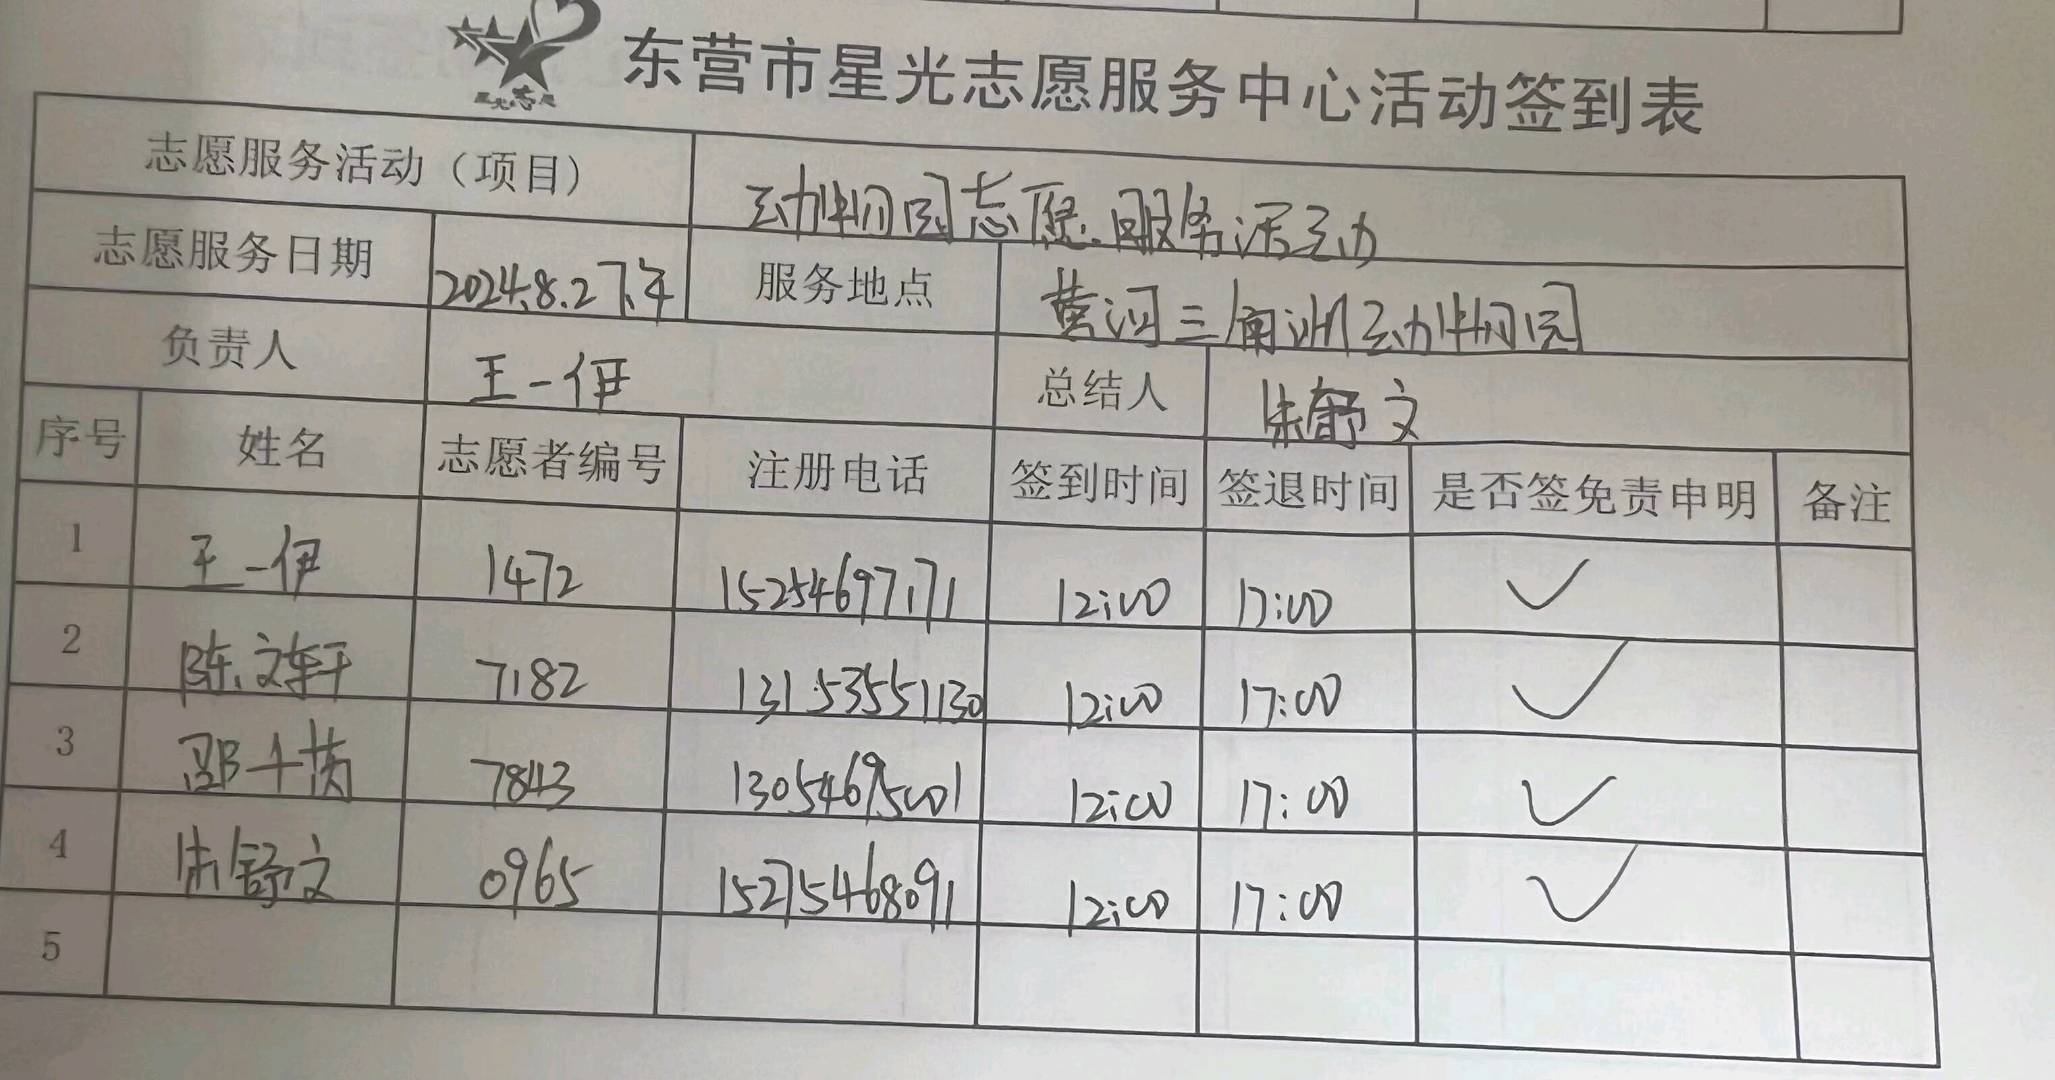 东营市星光志愿服务中心活动签到表
志愿服务活动（项目） 动物园志愿服务活动
志愿服务日期 2024.8.2下午 服务地点 黄河三角洲动物园
负责人 王一伊 总结人 朱舒文
序号 姓名 志愿者编号 注册电话 签到时间 签退时间 是否签免责申明 备注
1 王一伊 1472 15254697171 12:00 17:00 ✓
2 陈文轩 7182 13153551130 12:00 17:00 ✓
3 邵 7843 13054695001 12:00 17:00 ✓
4 朱舒文 0965 15275468091 12:00 17:00 ✓
5